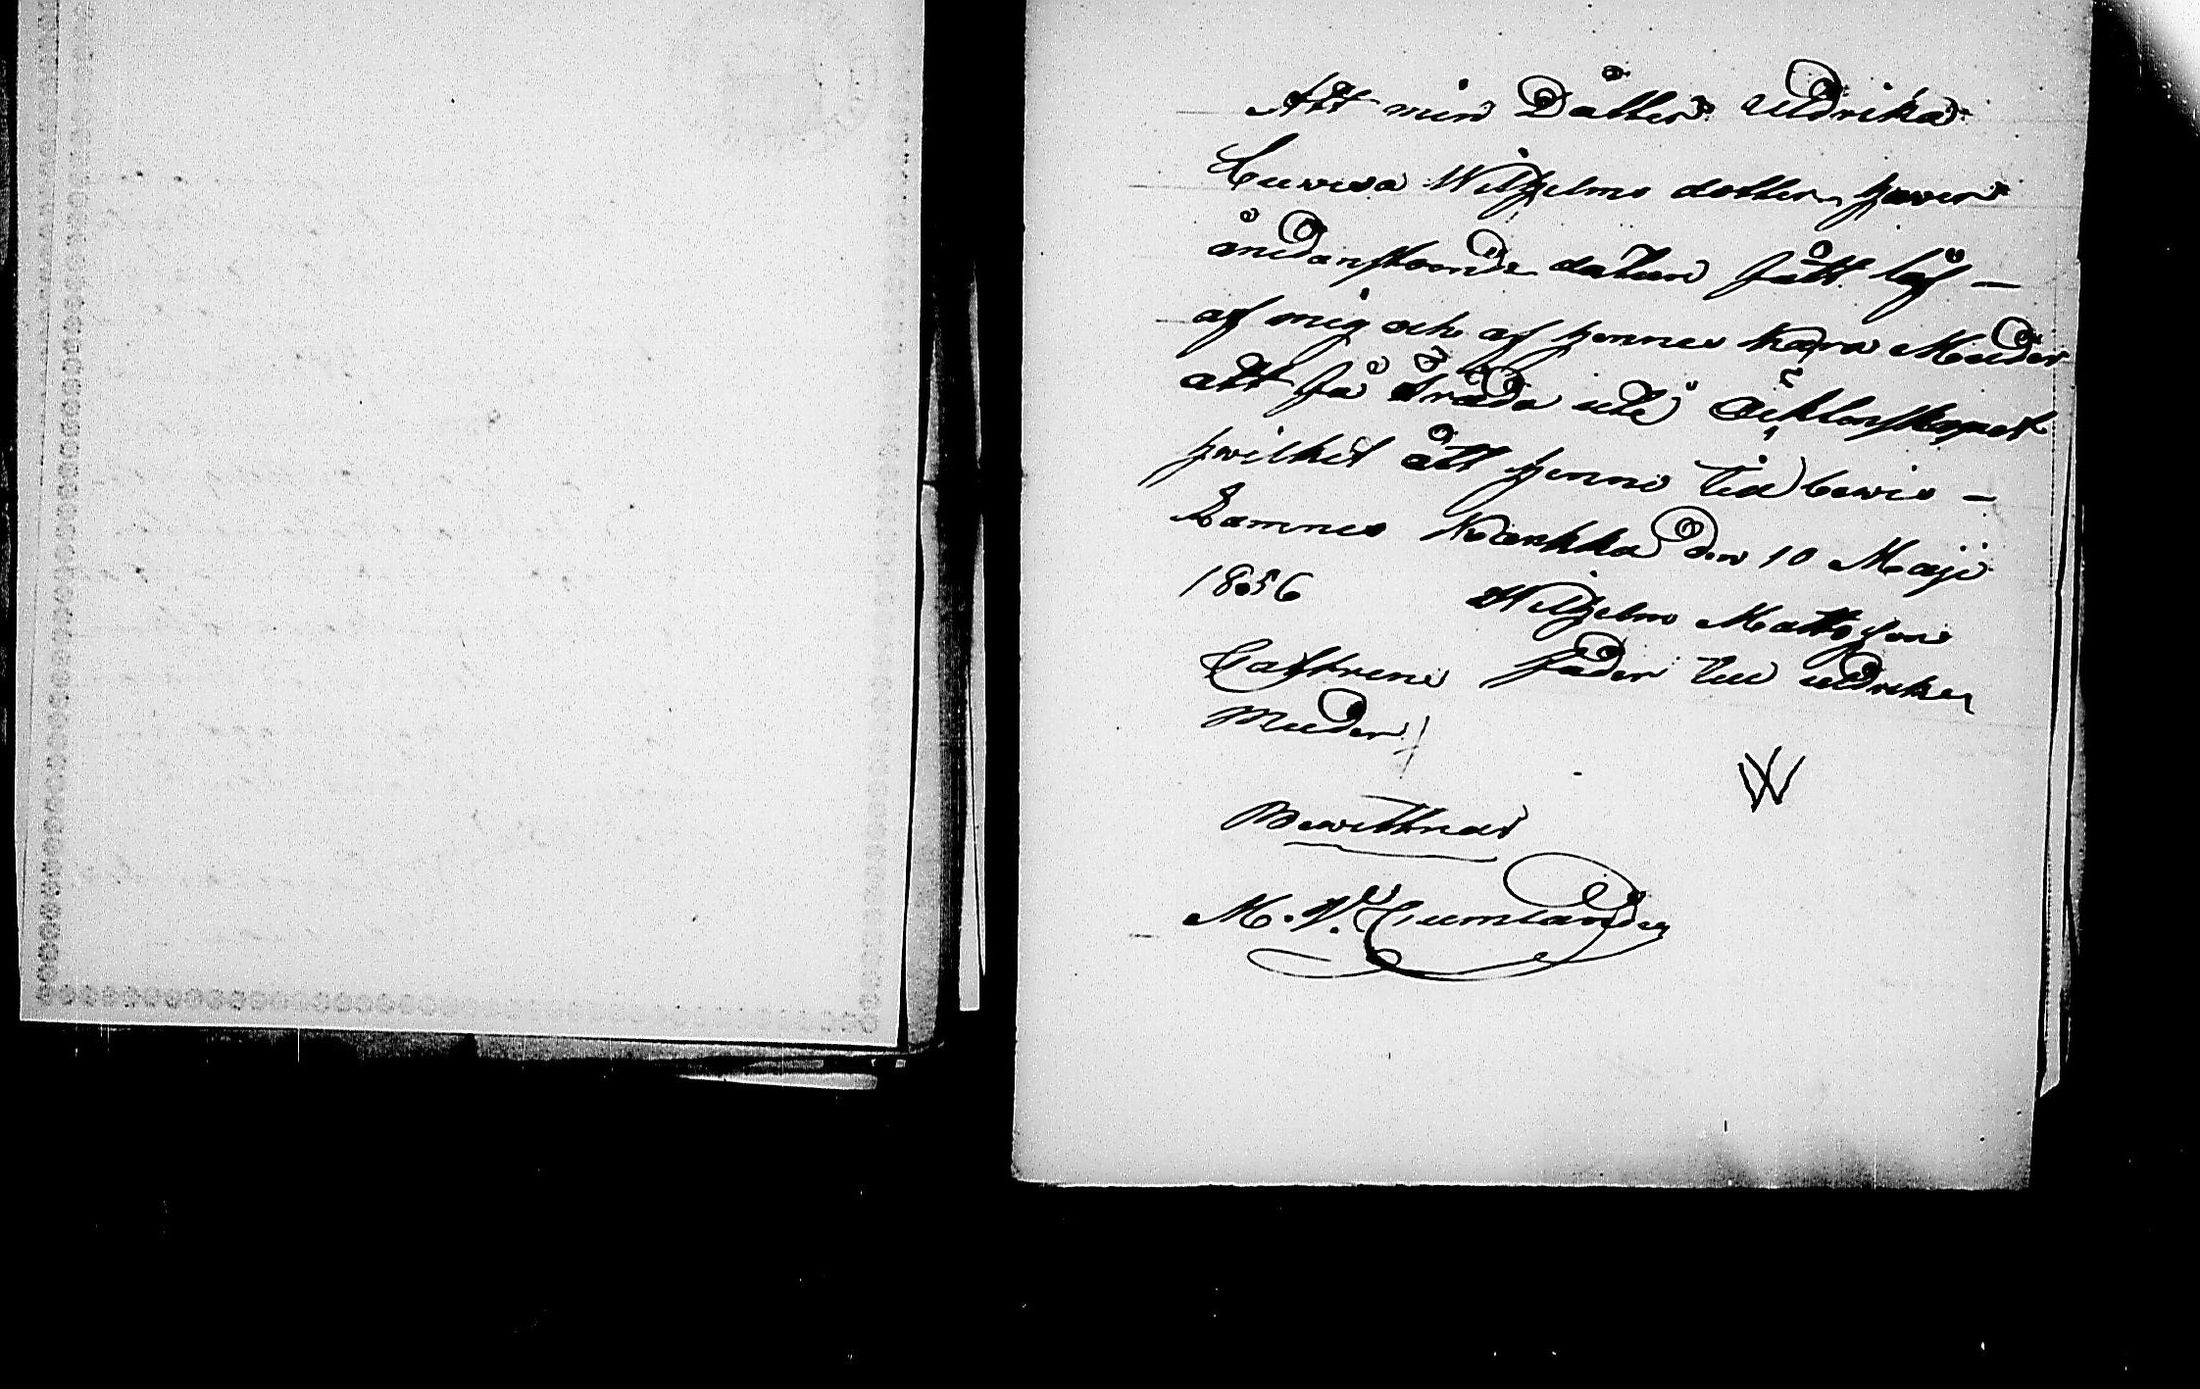 Att min Dåtter Uldrika
Luvisa Wilhelms dotter haver
ånedanstående datum fått lof —
af mig och af hennes kära Muder
att få träda utti Äcktenskapet
hvilket ått henne till bewis —
Lamnes Krackka den 10 Maji
1856 Wilhelm Mattsson
Cathrine fader till uldrika
Muder
W
Bewittnar
M. V. Cumlander